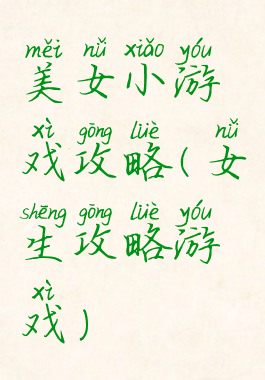 měi nǚ xiǎo yóu
美女小游
xì gōng lüè nǚ
戏攻略(女
shēng gōng lüè yóu
生攻略游
xì
戏)